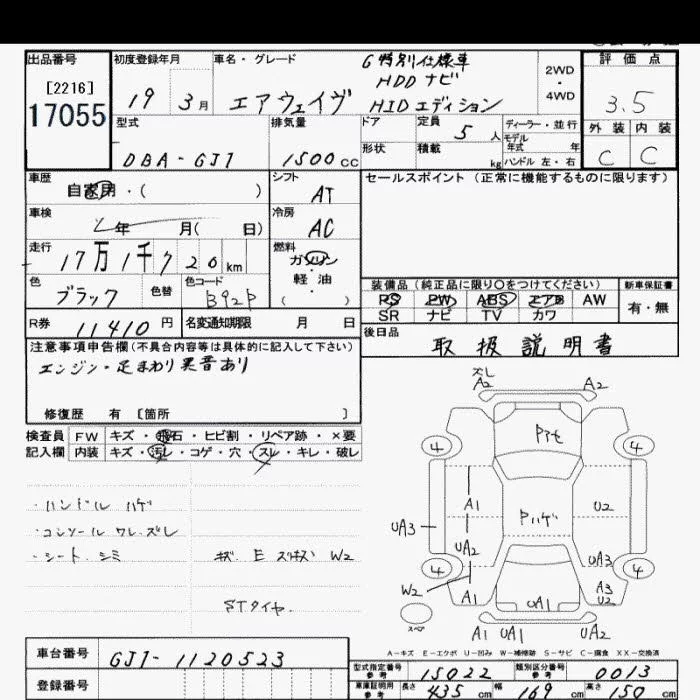 出品番号 初度登録年月 車名・グレード G特別仕様車 評価点
[2216] HDDナビ 2WD
17055 19 3月 エアウェイヴ HIDエディション 4WD 3.5
型式 排気量 ドア 定員 5人 ディーラー・並行 外装 内装
モデル年式 年
DBA-GJ1 1500cc 形状 積載 kg ハンドル 左・右 C C
車歴 自家用・( ) シフト AT セールスポイント(正常に機能するものに限ります)
車検 年 月( 日) 冷房 AC
走行 17万1千720km 燃料 ガソリン・軽油・( )
色 ブラック 色替 色コード B92P 装備品(純正品に限り〇をつけてください) 新車保証書
PS PW ABS エアB AW 有・無
SR ナビ TV カワ
R券 11410円 名変通知期限 月 日 後日品
取扱説明書
注意事項申告欄(不具合内容等は具体的に記入して下さい)
エンジン・足まわり異音あり
修復歴 有 [箇所 ]
検査員 FW キズ・飛石・ヒビ割・リペア跡・×要
記入欄 内装 キズ・汚レ・コゲ・穴・スレ・キレ・破レ
・ハンドル ハゲ
・コンソール ワレ.ズレ
・シート シミ キズ E W2
STタイヤ.
ズレ
A2 A2
4 4
A1 Pハゲ U2
UA3 UA2 UA3
4 4
W2 A1 UA1 A3
U2
スペア A1 UA1 UA2
A-キズ E-エクボ U-凹み W-補修跡 S-サビ C-腐食 XX-交換済
車台番号 GJ1-1120523 型式指定番号 参考 15022 類別区分番号 参考 0013
登録番号 車庫証明用 参考 長さ 435cm 幅 169cm 高さ 150cm